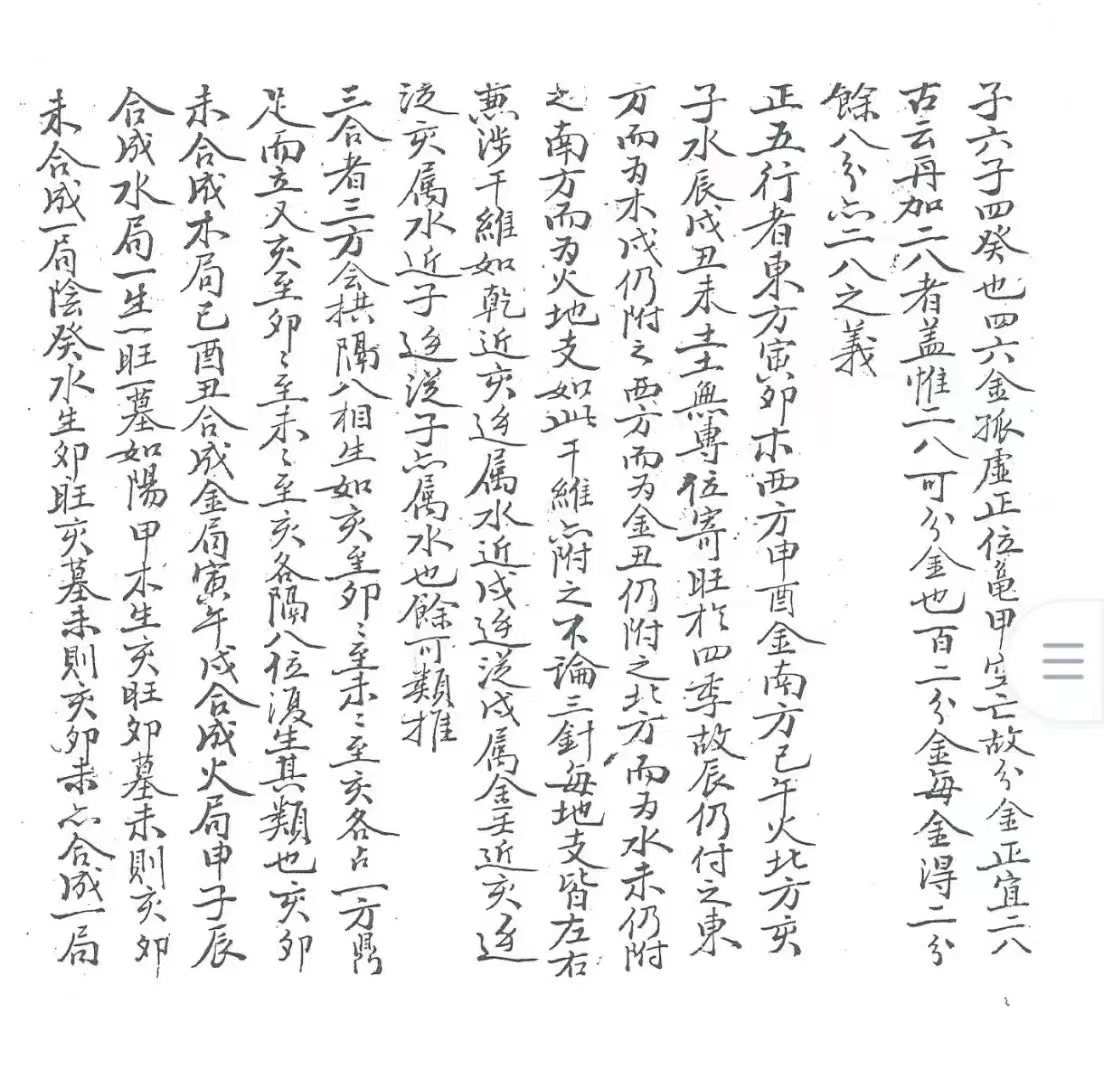 子六子四癸也四六金孤虛正位龜甲空亡故分金正宜二八
古云再加二八者盖惟二八可分金也百二分金每金得二分
餘八分亦二八之義
正五行者東方寅卯木西方申酉金南方巳午火北方亥
子水辰戌丑未土土無專位寄旺於四季故辰仍付之東
方而为木戌仍附之西方而为金丑仍附之北方而为水未仍附
之南方而为火地支如此干維亦附之不論三針每地支皆左右
兼涉干維如乾近亥逐属水近戌逐從戌属金壬近亥逐
從亥属水近子逐從子亦属水也餘可類推
三合者三方会拱隔八相生如亥至卯〻至未〻至亥各占一方鼎
足而立又亥至卯〻至未〻至亥各隔八位復生其類也亥卯
未合成木局巳酉丑合成金局寅午戌合成火局申子辰
合成水局一生一旺一墓如陽甲木生亥旺卯墓未則亥卯
未合成一局陰癸水生卯旺亥墓未則亥卯未亦合成一局